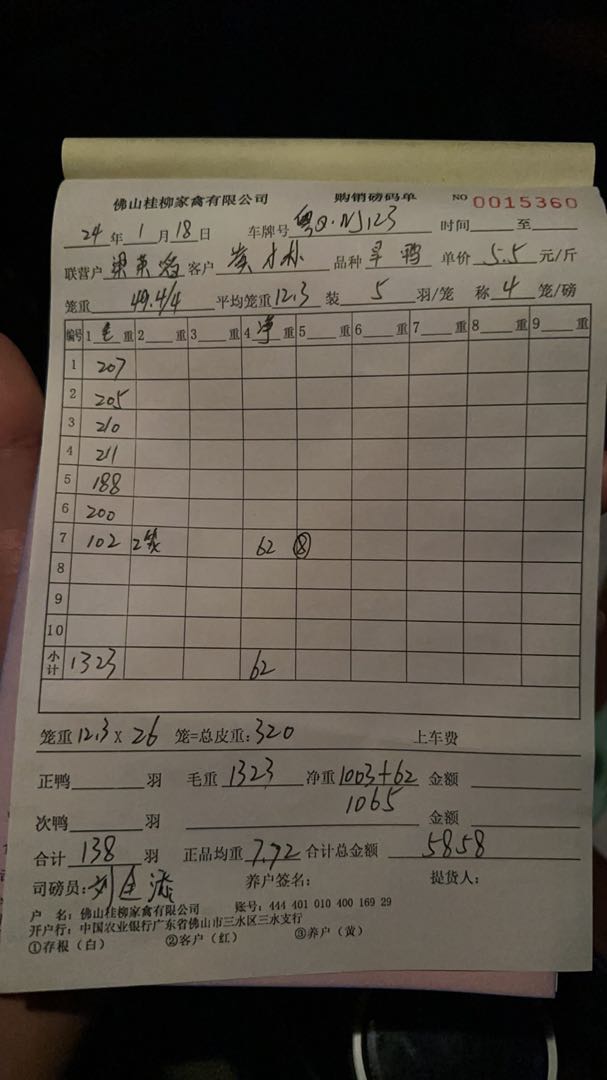 佛山桂柳家禽有限公司 购销磅码单 NO 0015360
24 年 1 月 18 日 车牌号 粤Q·NJ123 时间 至
联营户 客户 品种 旱鸭 单价 5.5 元/斤
笼重 49.4/4 平均笼重 12.3 装 5 羽/笼 称 4 笼/磅
编号 1 毛 重 2 重 3 重 4 净 重 5 重 6 重 7 重 8 重 9 重
1 207
2 205
3 210
4 211
5 188
6 200
7 102 2笼 62 ⑧
8
9
10
小计 1323 62
笼重 12.3 X 26 笼=总皮重: 320 上车费
正鸭 羽 毛重 1323 净重 1003+62 金额
次鸭 羽 1065 金额
合计 138 羽 正品均重 7.72 合计总金额 5858
司磅员: 养户签名: 提货人:
户 名: 佛山桂柳家禽有限公司 账号: 444 401 010 400 169 29
开户行: 中国农业银行广东省佛山市三水区三水支行
①存根（白） ②客户（红） ③养户（黄）